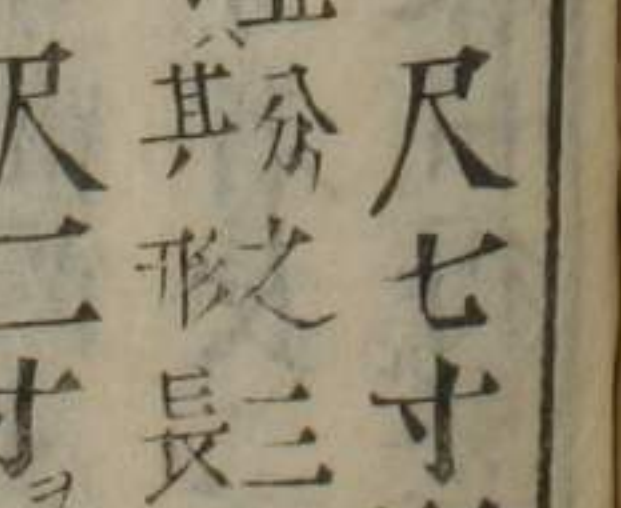 尺七寸
分之三
其形長
尺二寸